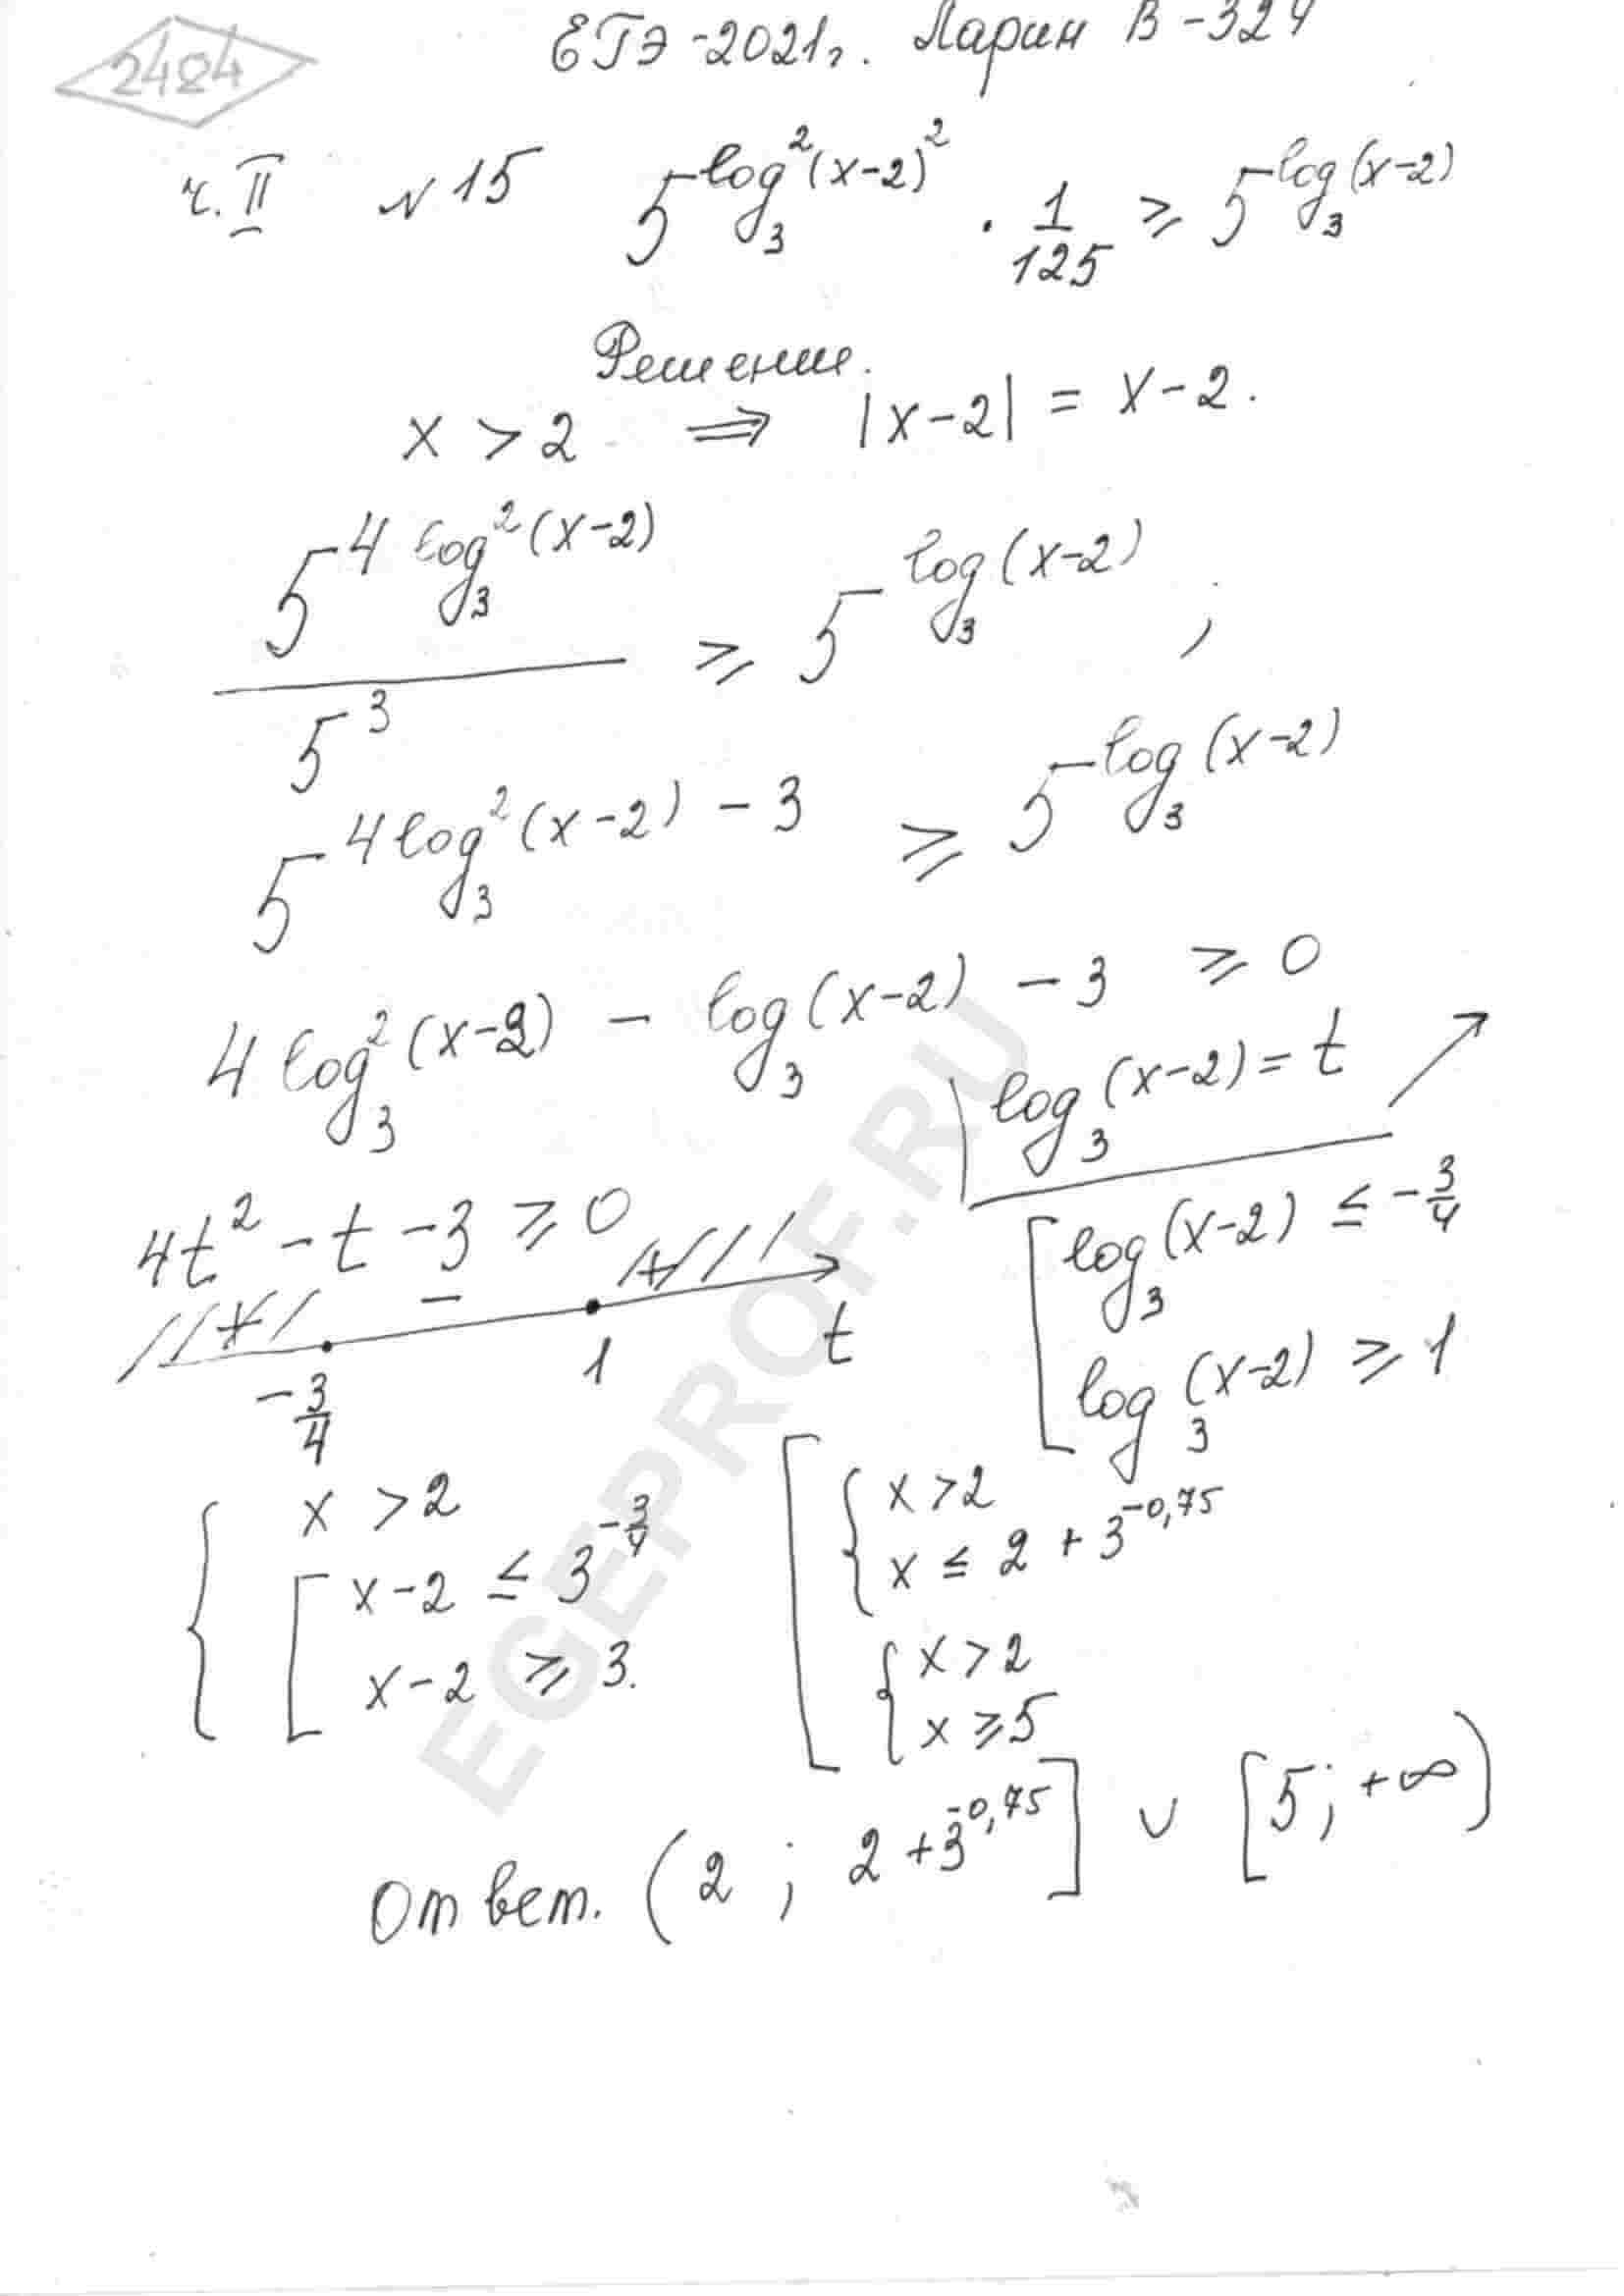 2484
ЕГЭ-2021г. Ларин В-324
ч. II № 15 5^{log_3^2(x-2)^2} · 1/125 ≥ 5^{log_3(x-2)}
Решение.
x > 2 ⇒ |x-2| = x-2.
5^{4 log_3^2(x-2)} / 5^3 ≥ 5^{log_3(x-2)} ;
5^{4 log_3^2(x-2) - 3} ≥ 5^{log_3(x-2)}
4 log_3^2(x-2) - log_3(x-2) - 3 ≥ 0
log_3(x-2) = t
4t^2 - t - 3 ≥ 0
+ - +
-3/4 1 t
[ log_3(x-2) ≤ -3/4
log_3(x-2) ≥ 1
{ x > 2
[ x-2 ≤ 3^{-3/4}
x-2 ≥ 3.
[ { x > 2
x ≤ 2 + 3^{-0,75}
{ x > 2
x ≥ 5
Ответ. (2 ; 2+3^{-0,75}] ∪ [5; +∞)
EGEPROF.RU